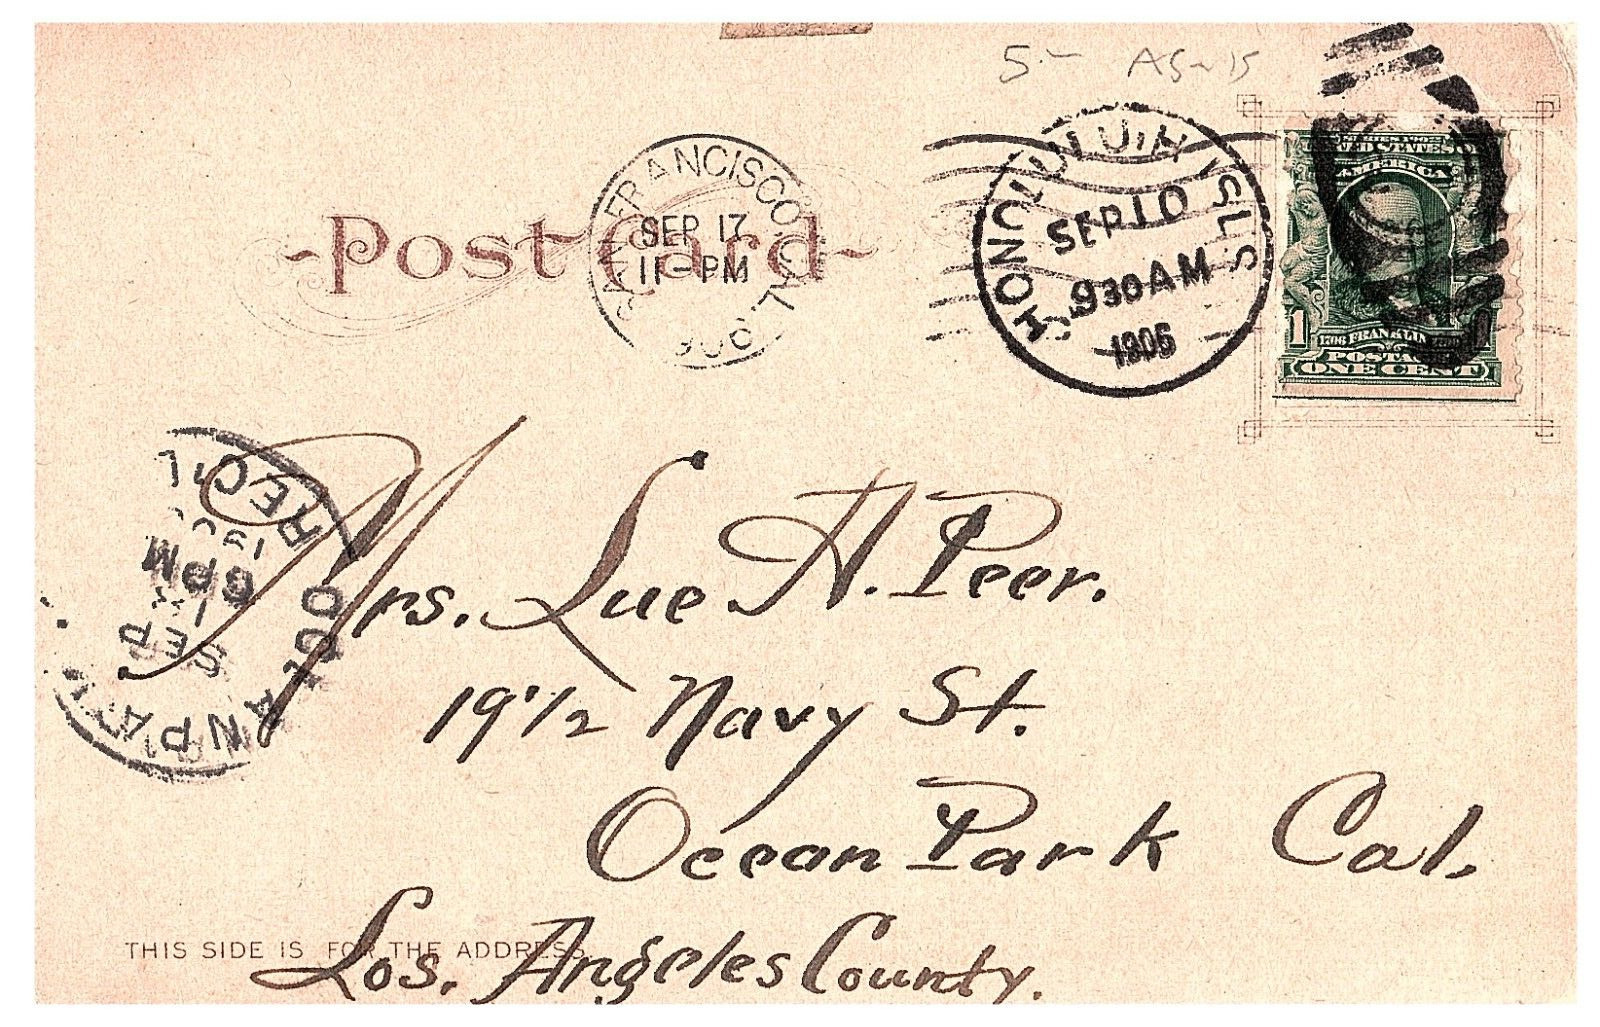 5.- AS-15
-Post Card-
SAN FRANCISCO, CAL.
SEP 17
11-PM
HONOLULU, H. ISLS
SEP 10
930AM
1906
UNITED STATES OF
AMERICA
1706 FRANKLIN
POSTAGE
1
ONE CENT
REC'D.
6PM
SEP
Mrs. Lue H. Peer.
19 1/2 Navy St.
Ocean Park Cal.
THIS SIDE IS FOR THE ADDRESS
Los. Angeles County.